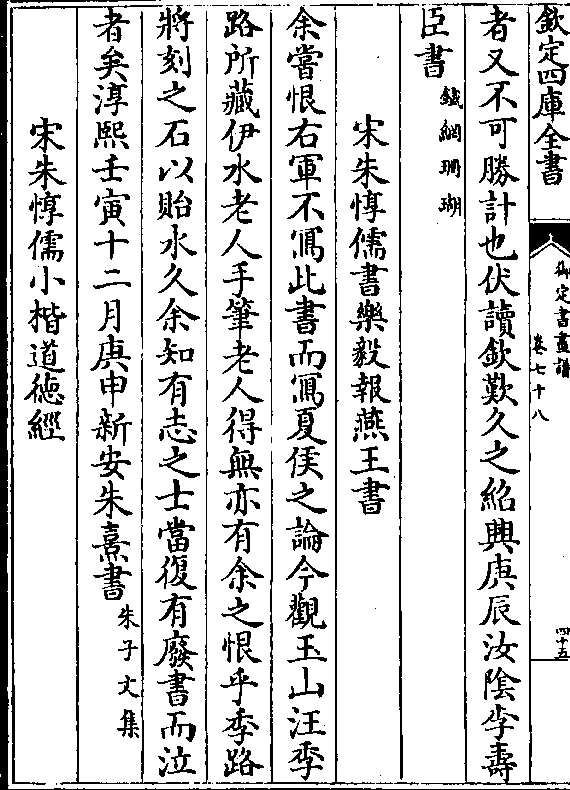 欽定四庫全書
御定書畫譜
卷七十八
四十五
者又不可勝計也伏讀欽歎久之紹興庚辰汝陰李壽
臣書鐵網珊瑚
宋朱惇儒書樂毅報燕王書
余嘗恨右軍不寫此書而寫夏侯之論今觀玉山汪季
路所藏伊水老人手筆老人得無亦有余之恨乎季路
將刻之石以貽永久余知有志之士當復有廢書而泣
者矣淳熙壬寅十二月庚申新安朱熹書朱子文集
宋朱惇儒小楷道德經